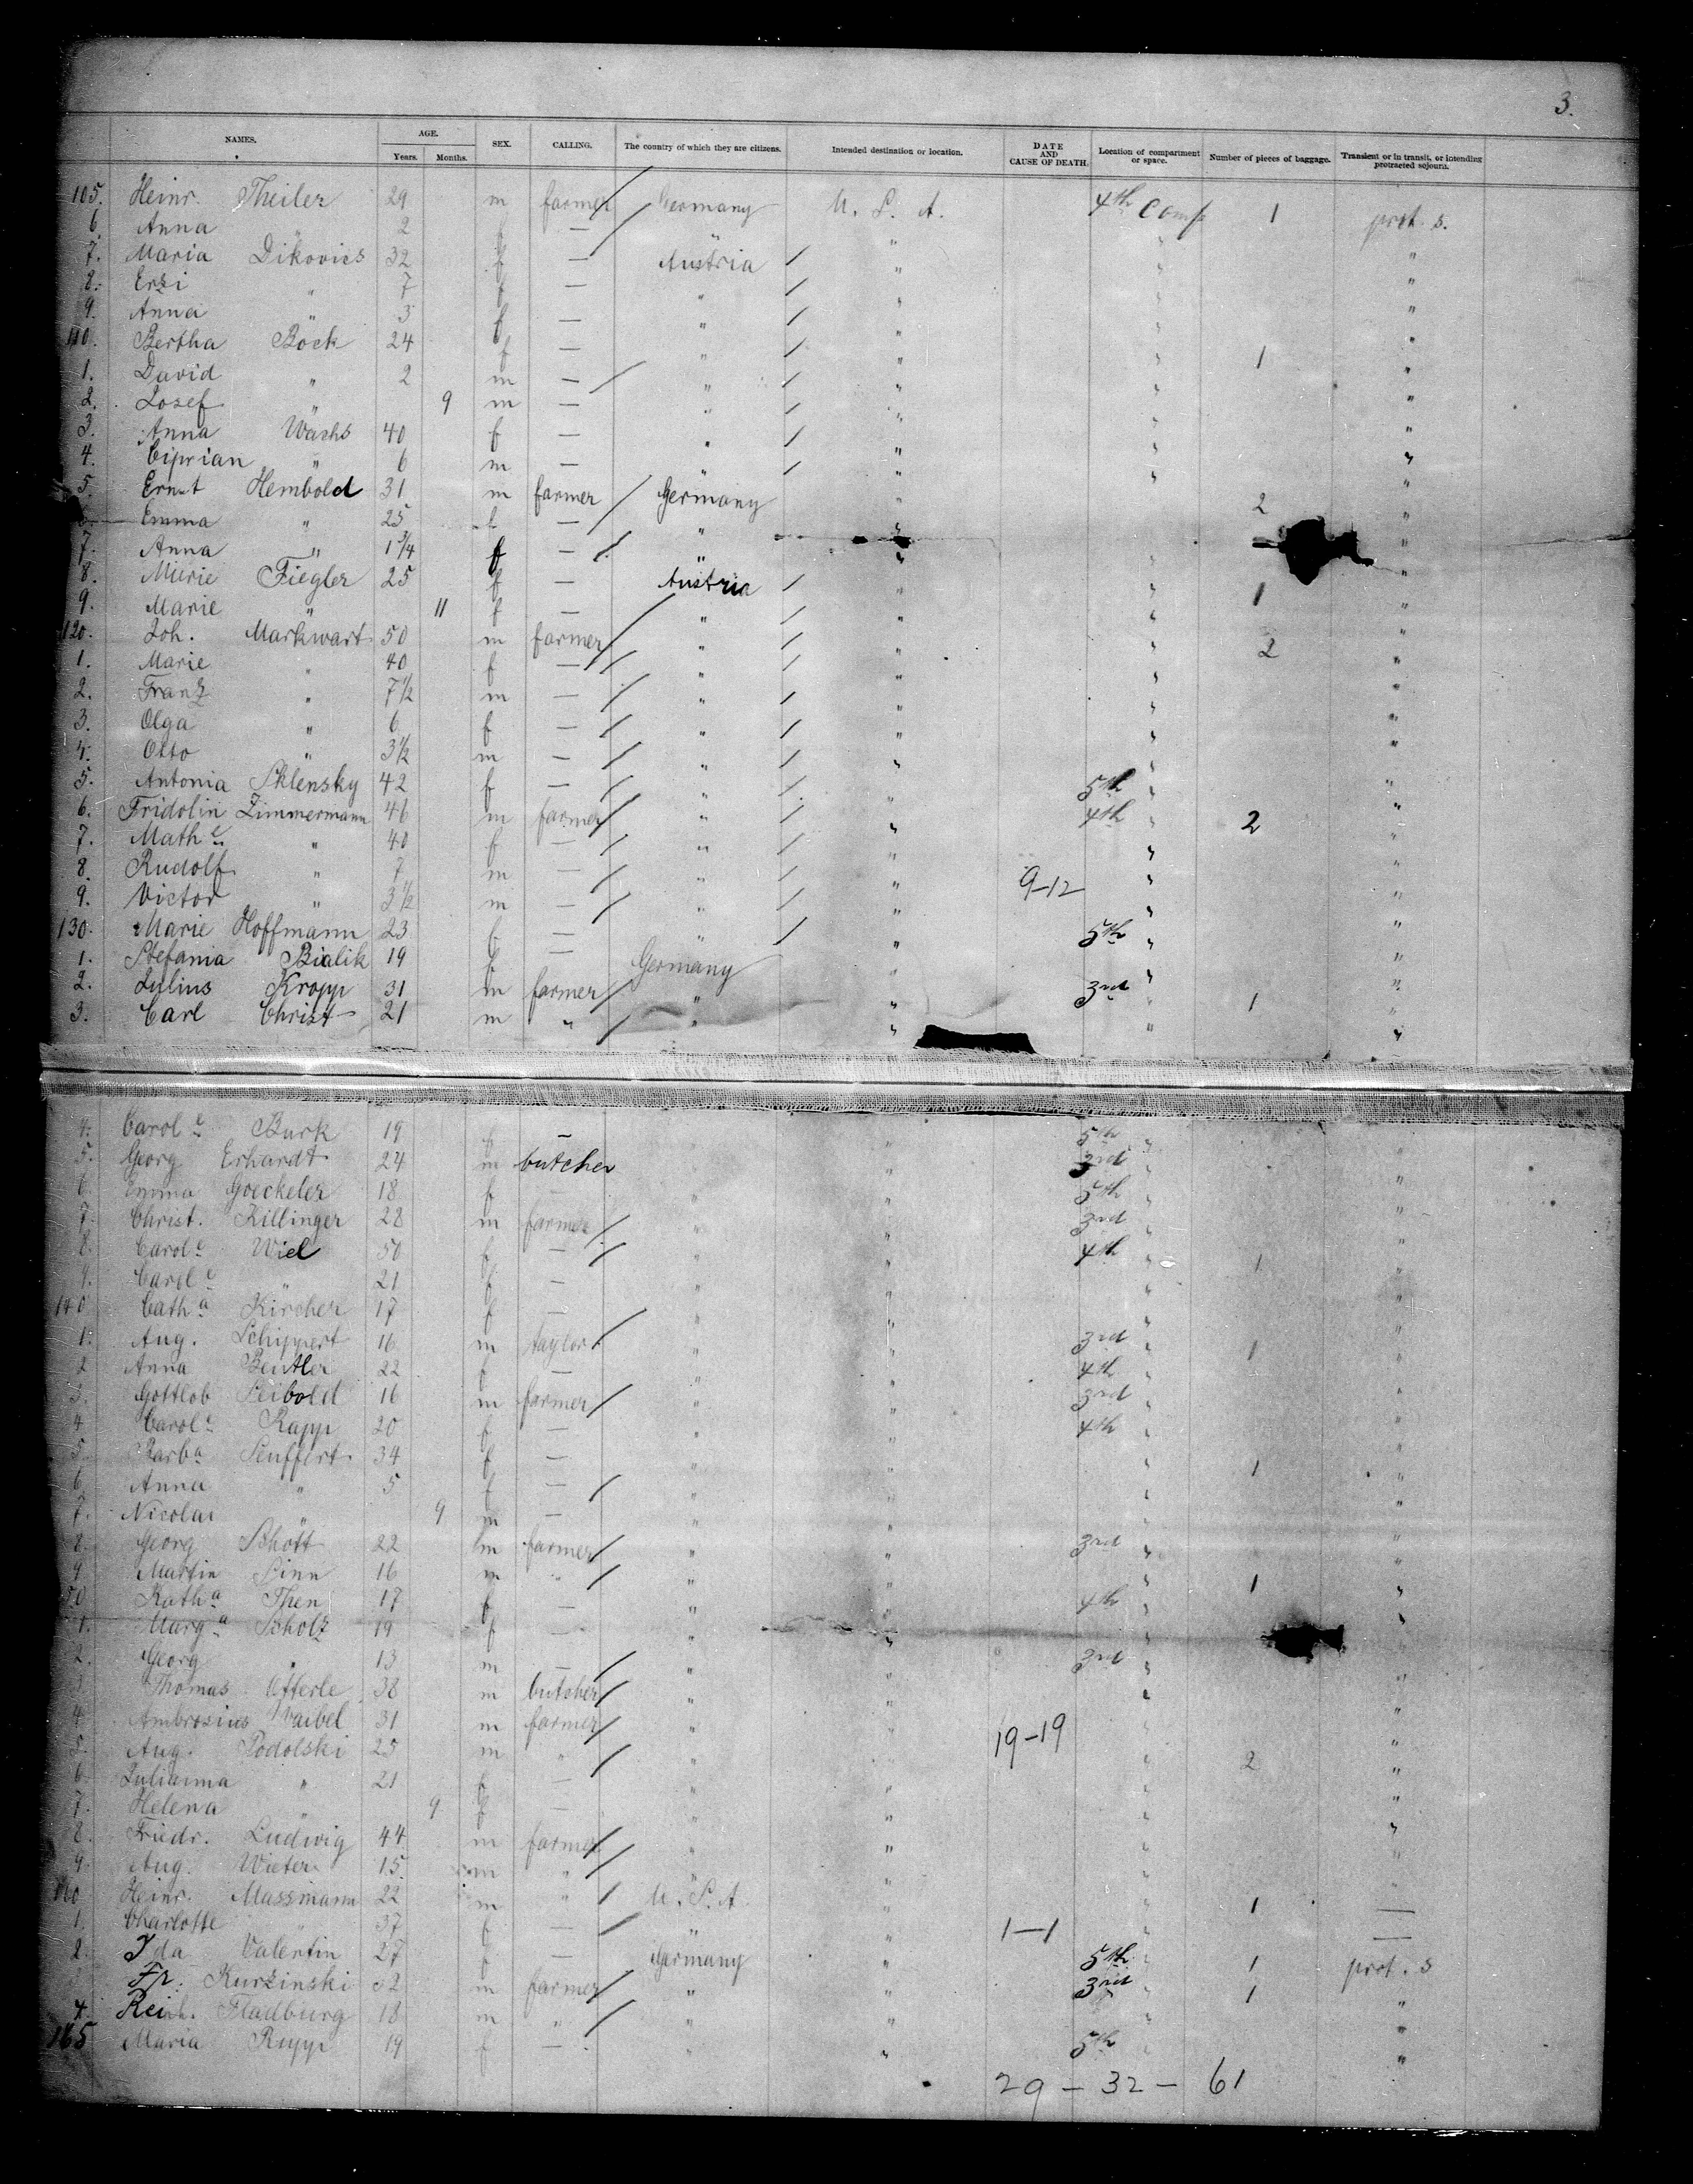 3.
NAMES. AGE. Years. Months. SEX. CALLING. The country of which they are citizens. Intended destination or location. DATE AND CAUSE OF DEATH. Location of compartment or space. Number of pieces of baggage. Transient or in transit, or intending protracted sojourn.
105. Heinr. Theiler 29 m farmer Germany U. S. A. 4th Comp 1 prot. s.
6. Anna " 2 f — " " " "
7. Maria Dikovics 32 f — Austria " " "
8. Erzi " 7 f — " " " "
9. Anna " 3 f — " " " "
110. Bertha Böck 24 f — " " " 1 "
1. David " 2 m — " " " "
2. Josef " 9 m — " " " "
3. Anna Wachs 40 f — " " " "
4. Ciprian " 6 m — " " " "
5. Ernst Hembold 31 m farmer Germany " " 2 "
6. Emma " 25 f — " " "
7. Anna " 1 3/4 f — " " " "
8. Marie Fiegler 25 f — Austria " " 1 "
9. Marie " 11 f — " " " "
120. Joh. Markwart 50 m farmer " " " 2 "
1. Marie " 40 f — " " " "
2. Franz " 7 1/2 m — " " " "
3. Olga " 6 f — " " " "
4. Otto " 3 1/2 m — " " " "
5. Antonia Sklensky 42 f — " " 5th " "
6. Fridolin Zimmermann 46 m farmer " " 4th " 2 "
7. Math e " 40 f — " " " "
8. Rudolf " 7 m — " " 9-12 " "
9. Victor " 3 1/2 m — " " " "
130. Marie Hoffmann 23 f — " " 5th " "
1. Stefania Bialik 19 f — Germany " " "
2. Julius Kropp 31 m farmer " " 3rd " 1 "
3. Carl Christ 21 m " " " " "
4. Carol e Burk 19 f — " 5th " "
5. Georg Erhardt 24 m butcher " 3rd " "
6. Emma Goeckeler 18 f — " " 5th " "
7. Christ. Killinger 28 m farmer " " 3rd " "
8. Carol e Wiel 50 f — " " 4th " 1 "
9. Carol e " 21 f — " " " "
140 Cath a Kircher 17 f — " " " "
1. Aug. Schippert 16 m taylor " " 3rd " 1 "
2 Anna Beutler 22 f — " " 4th " "
3. Gottlob Seibold 16 m farmer " " 3rd " "
4 Carol e Rapp 20 f — " " 4th " "
5 Barb a Seuffert 34 f — " " " 1 "
6 Anna " 5 f — " " " "
7. Nicolai " 9 m — " " " "
8. Georg Schött 22 m farmer " " 3rd " "
9 Martin Sinn 16 m " " " " 1 "
50 Kath a Then 17 f — " " 4th " "
1. Marg a Scholz 19 f — " " "
2. Georg " 13 m — " " 3rd " "
3 Thomas Otterle 38 m butcher " " " "
4 Ambrosius Waibel 31 m farmer " " 19-19 " "
5. Aug. Podolski 25 m " " " " 2 "
6 Julianna " 21 f — " " " "
7. Helena " 9 f — " " " "
8. Friedr. Ludwig 44 m farmer " " " "
9. Aug. Wieter 15 m " " " " "
160 Heinr. Massmann 22 m " U. S. A. " " 1 —
1. Charlotte " 37 f — " " 1-1 " —
2. Ida Valentin 27 f — Germany " 5th " 1 prot. s
Fr. Kurzinski m farmer " " 3rd " 1 "
4. Fladburg 18 m " " " " "
165 Maria Rupp 19 f — " " 5th " "
29 — 32 — 61